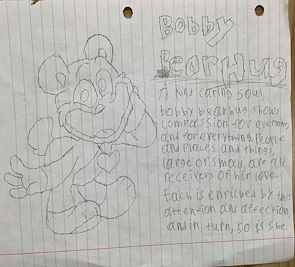 Bobby
BearHug
A kind caring soul,
bobby bearhug shows
compassion for everyone
and for everything. People
and places and things,
large or small, are all
receivers of her love.
Each is enriched by this
attention and affection,
and in turn, so is she.